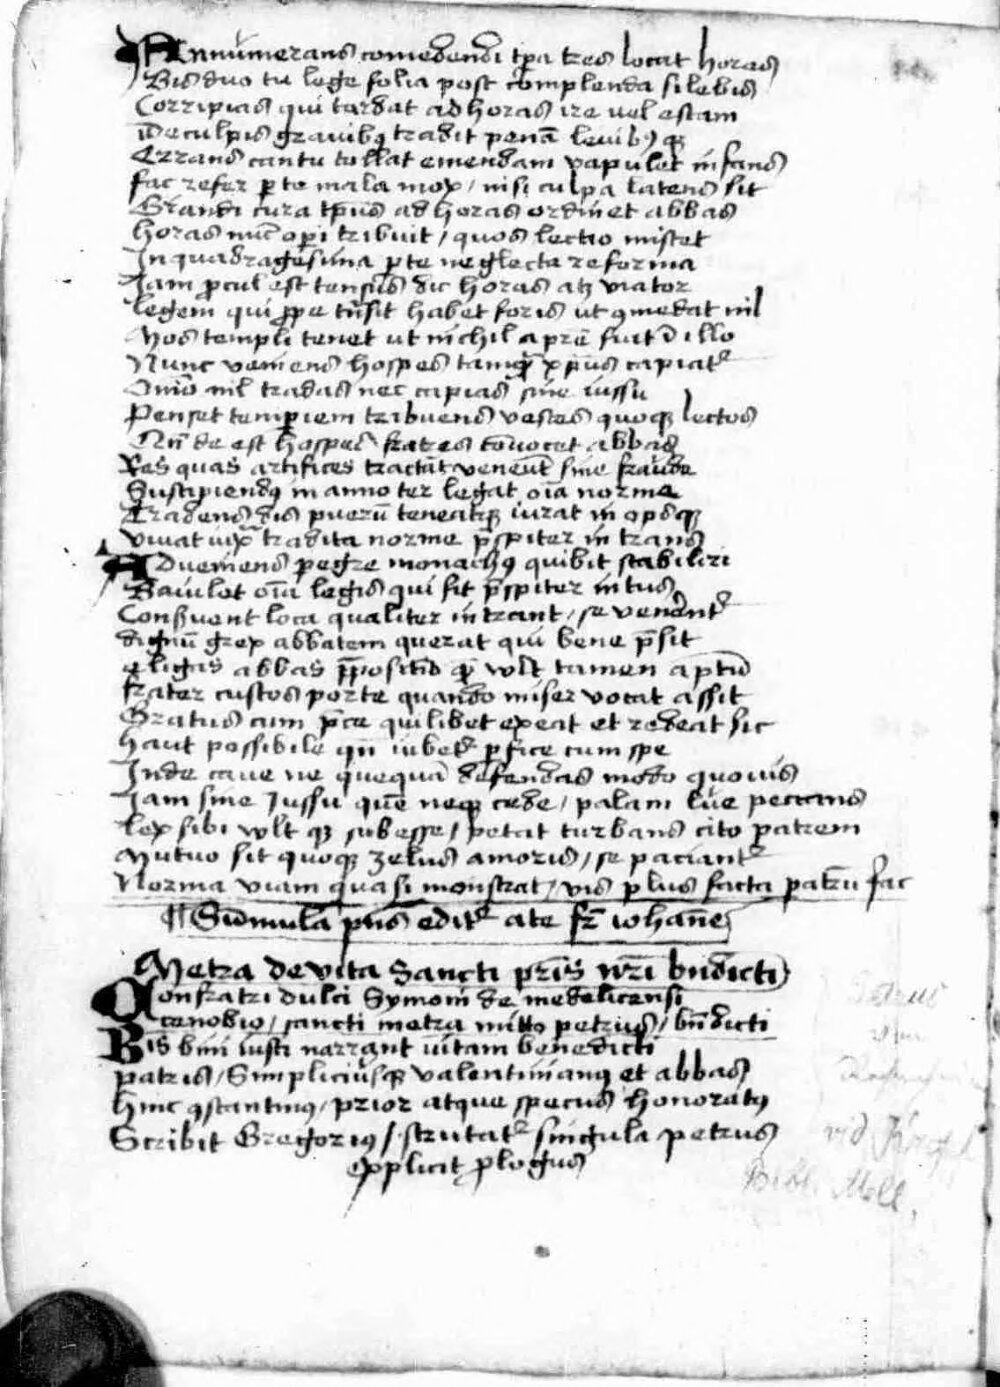 Annumerans comedendi tꝑa tres locat horas
Bis duo tu lege folia post completa silebis
Corripias qui tardat ad horas ire uel escam
De culpis grauibꝰ tradit penā leuibꝰ qꝫ
Errans cantu tollat emendam vapulet infans
fac refer ꝑ te mala mox / nisi culpa latens sit
Grandi cura tp̄us ad horas ordinet abbas
horas nūc oꝑi tribuit / quos lectio mistet
In quadragesima ꝑ te neglecta reforma
Iam ꝓcul est tensus dic horas atꝫ viator
legem qui ꝓpe tn̄sit habet foris ut ꝯmedat nil
Mos templi tenet ut nichil a p̄re fiat ī illo
Nunc veniens hospes tamqͣ xp̄us capiatᷣ
Omīo nil tradas nec capias sine iussu
Penset temꝑiem tribuens vestes quoqꝫ lectos
Qn̄ de est hospes frates cōuocet abbas
Res quas artifices tractāt veneūt sine fraude
Suscipiendꝰ in anno ter legat oīa norme
Tradens dis pueꝝ teneatqꝫ iurat in
viuat iux̄ tradita norme p̄spiter intrans
Adueniens ꝑegre monachꝰ quibit stabiliri
Baiulot oīa legis qui fit p̄spiter intus
Conẜuent loca qualiter intrant / se venāntᷣ
dignū grex abbatem querat qui bene p̄sit
eligas abbas p̄positū qͣ wlt tamen aptū
frater custos porte quando miser vocat assit
Gratus cum p̄ce quilibet exeat et redeat sic
haut possibile qn̄ iubetᷣ ꝑfice cum spe
Inde caue ne quequā defendas modo quouis
Iam sine Iussu quē neqꝫ cede / palam lue peccans
lex sibi wlt qꝫ subesse / petat turbans cito patrem
Mutuo sit quoqꝫ zelus amoris / se paciantᷣ
Norma viam quasi monstrat / vis plus facta patꝝ fac
¶ Sūmula p̄ns editᷣ a te fr̄ iohan̄es
Metra de vita Sancti pr̄is nr̄i bn̄dicti
Confratri dulci Symoni de medelicensi
cenobio / sancti metra mitto petrus / bn̄dicti
Bis bini iusti narrant uitam benedicti
patris / Simpliciusqꝫ valentinianꝰ et abbas
hinc ꝯstantinꝰ / prior atque specus honoratꝰ
Scribit Gregoriꝰ / scrutatᷣ singula petrus
Explicit ꝓlogus
Petrus
vid.
Bibl. Mell.